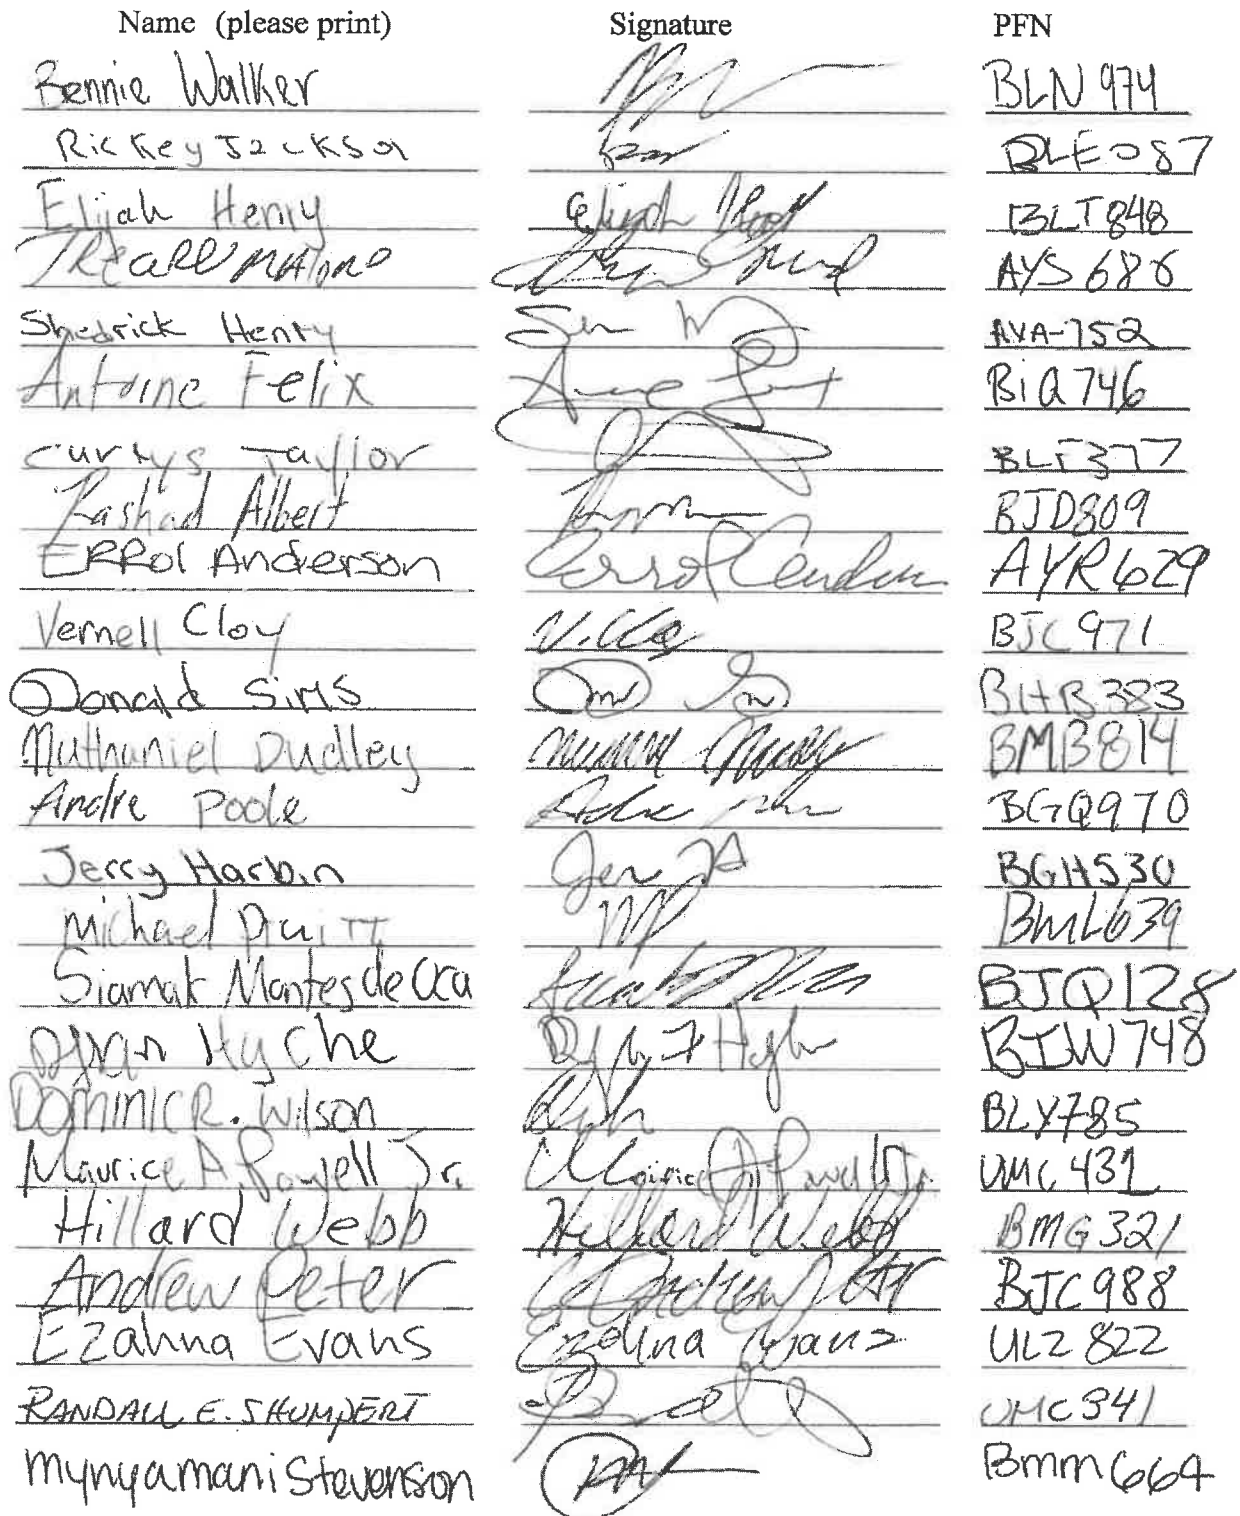 Name (please print) Signature PFN
Bennie Walker BLN 974
Rickey Jackson BLE087
Elijah Henry Elijah BLT848
Malone AYS 686
Shedrick Henry AYA-752
Antoine Felix BiQ746
Curtys Taylor BLF377
Rashad Albert BJD809
ERRol Anderson Errol AYR629
Vernell Cloy BJC971
Donald Sims BHB383
Nuthaniel Dudley BMB814
Andre Poole BGQ970
Jerry Harbin BGH530
Michael Pruitt MP BML639
Siamak Montes de Oca BJQ128
Hyche BJW748
DOMINIC R. Wilson BLY785
Maurice A. Powell Jr. Maurice A. Powell Jr. UMC 431
Hillard Webb Hillard Webb BMG321
Andrew Peter Andrew Peter BJC988
Ezahna Evans Ezahna Evans ULZ 822
RANDALL E. SHUMPERT UMC341
mynyamani Stevenson Bmm664